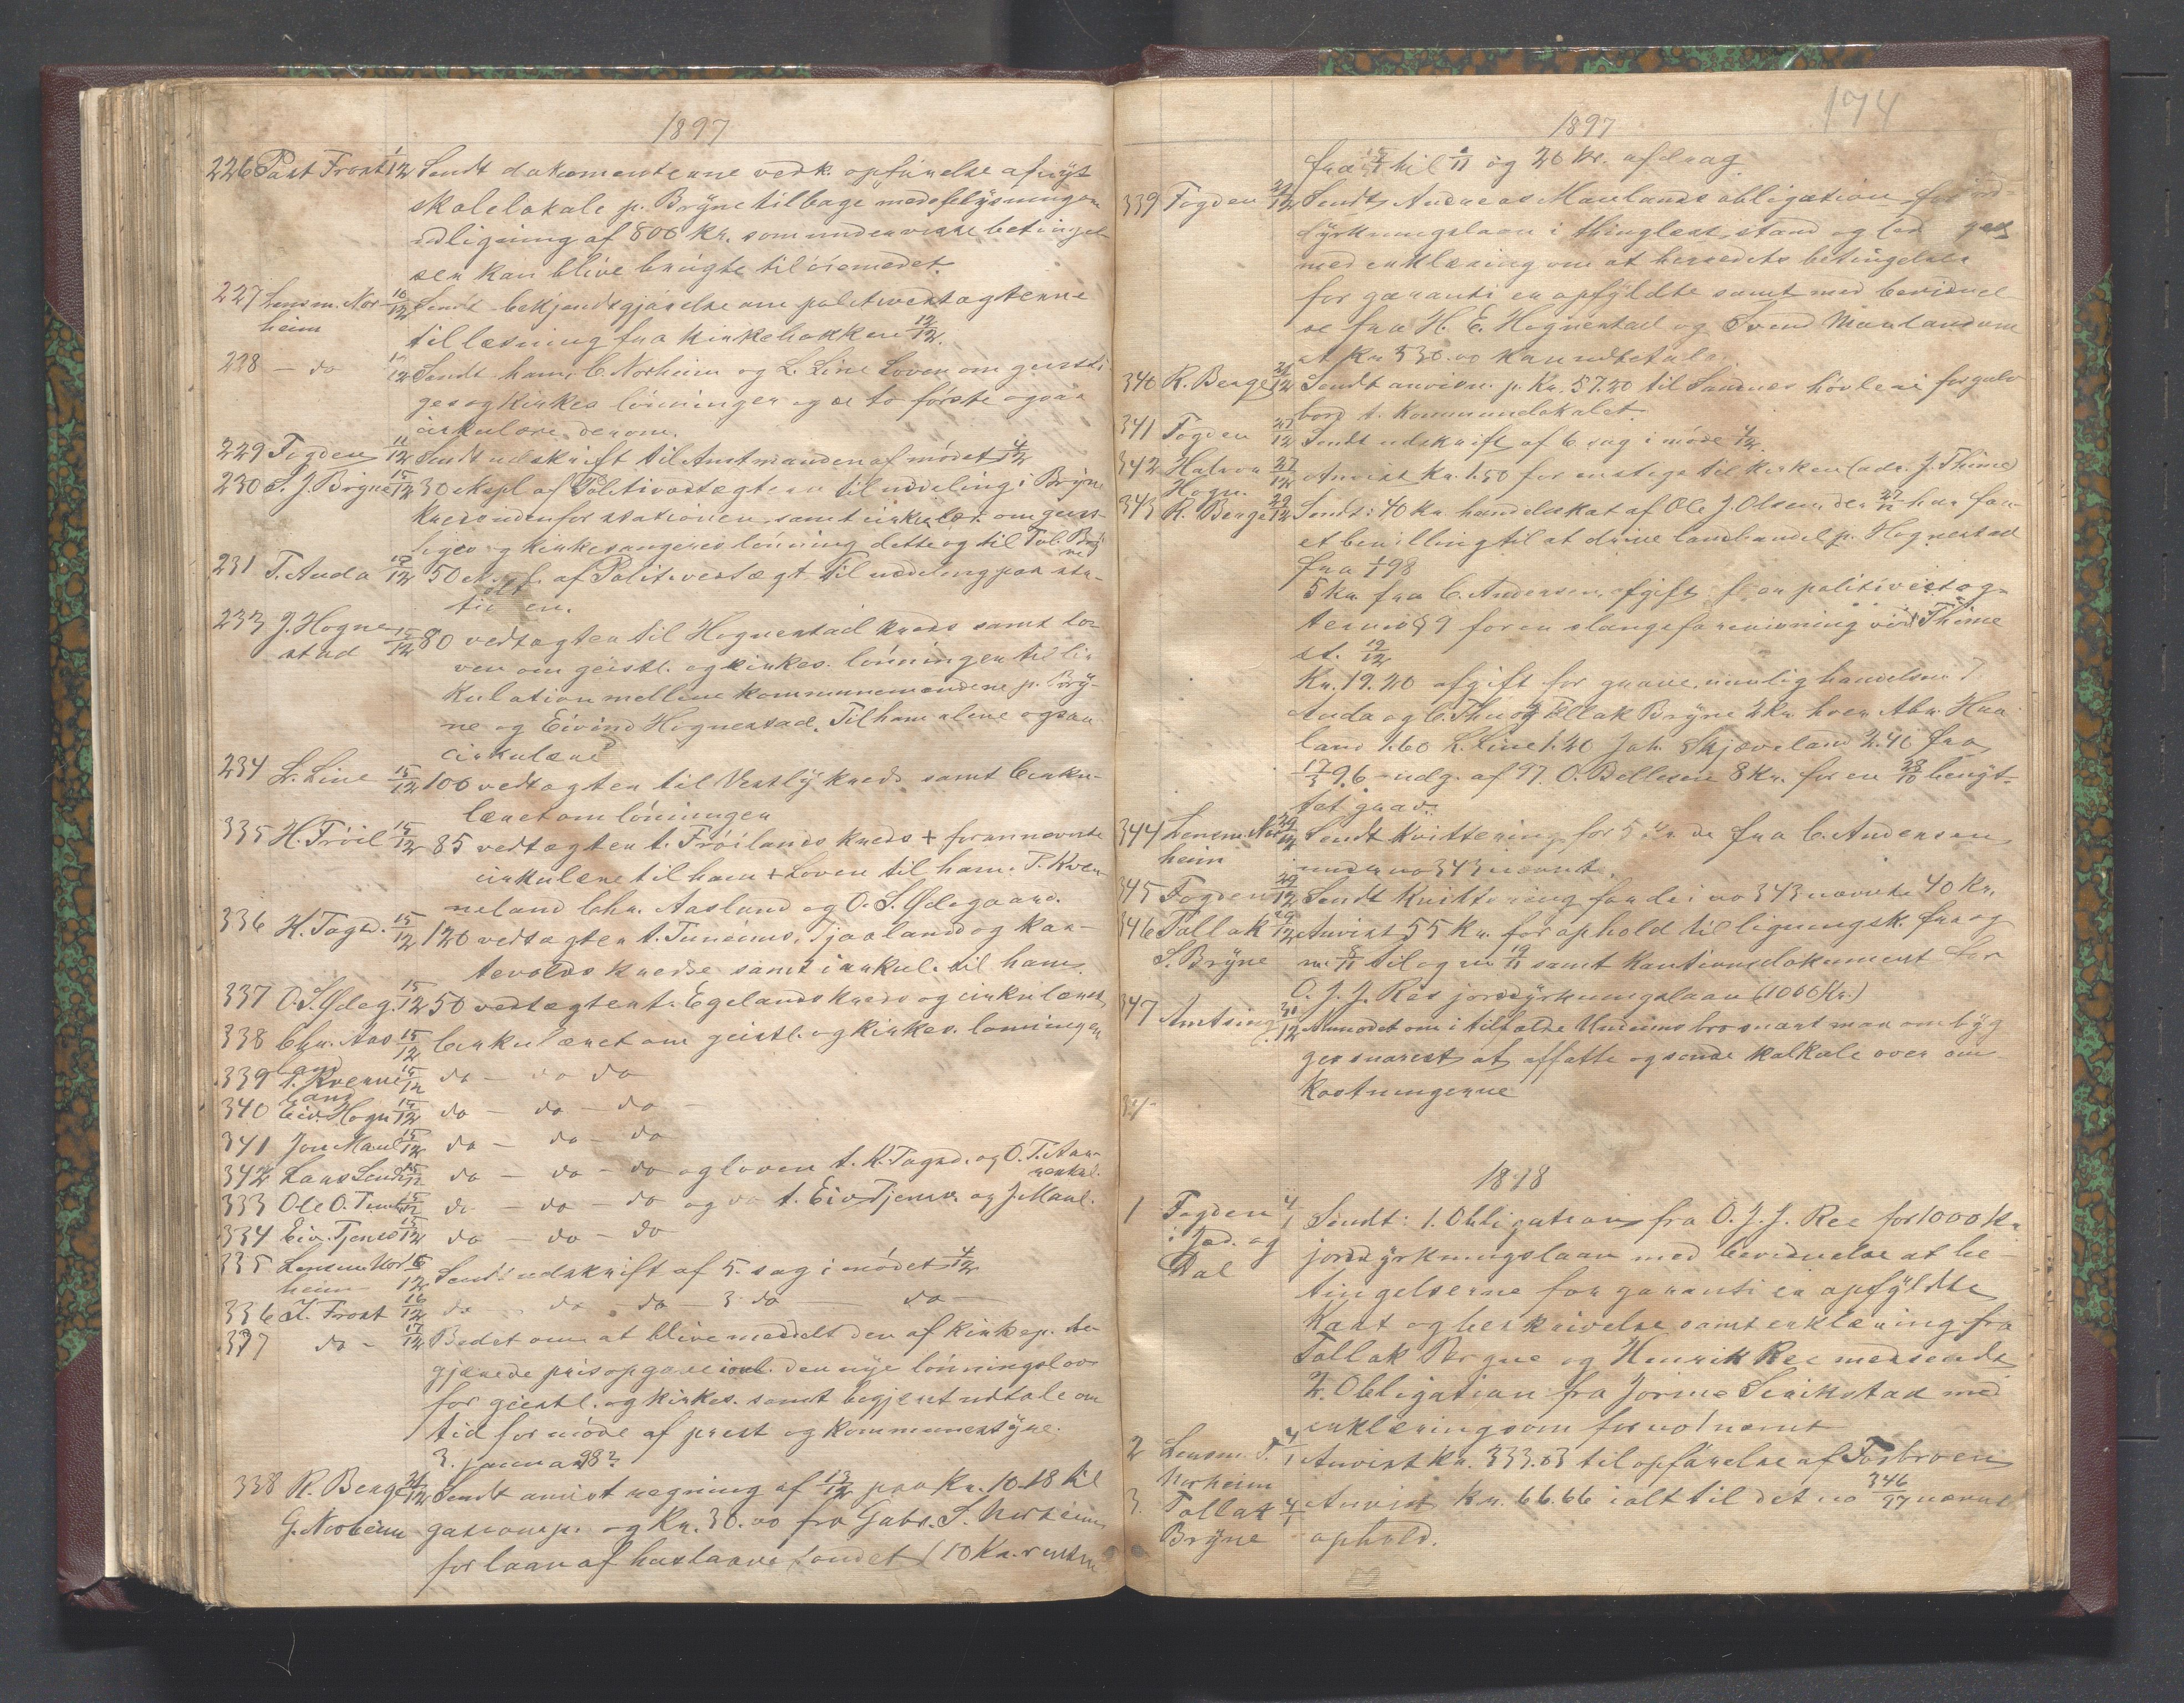 1897
226 Past Frost 1/12 Sendt dokumenterne vedk. opførelse af nyt
skolelokale p. Brÿne tilbage med oplÿsning om
udligning af 800 Kr. som under visse betingel
ser kan blive brugte til öiemedet.
227 Lensm. Nor 10/12 Sendt bekjendtgjørelse om politivedtægterne
heim til læsning fra kirkebakken 12/12.
228 — do 10/12 Sendt ham, C. Norheim og L. Line Loven om geistli
ges og kirkes lönninger og de to förste ogsaa
cirkulære derom.
229 Fogden 11/12 Sendt udskrift til Amtmanden af mödet 4/12
230 S. J. Brÿne 15/12 30 ekspl af Politivedtægterne til uddeling i Brÿne
kreds udenfor stationen, samt cirkulær om geist
liges og kirkesangeres lönning dette og til Tol. Brÿ
ne
231 T. Auda 15/12 50 ekspl. af Politivedtægt. til uddeling paa sta-
tionen.
233 J. Hogne 15/12 80 vedtægter til Hognestad kreds samt lo-
stad ven om geistl. og kirkes. lönninger til cir
kulation mellem kommunemændene p. Brÿ-
ne og Eivind Hognestad. Til ham alene ogsaa
cirkulæret
234 L. Line 15/12 100 vedtægter til Vestlÿ kreds samt Cirku-
læret om lönninger
335 H. Fröil 15/12 85 vedtægter t. Fröilands kreds + forannævnte
cirkulære til ham + Loven til ham, T. Kver-
neland Chr. Aasland og O. S. Ødegaard.
336 K. Tagsd. 15/12 120 vedtægter t. Tuneims, Tjaalands og Kar-
tevolds kredse samt cirkul. til ham
337 O. S. Ødeg. 15/12 50 vedtægter t. Egelands kreds og cirkulæret
338 Chr. Aas 15/12 Cirkulæret om geistl. og kirkes. lönninger
land
339 T. Kverne 15/12 do — do do
land
340 Eiv. Hogn 15/12 do — do — do —
341 Jon Maul 15/12 do — do — do
342 Lars Lende 15/12 do — do — do og loven t. K. Tagsd. og O. T. Aar-
restad.
333 Ole O. Tunh 15/12 do — do — do og do t. Eiv Tjensv. og J. Maul.
334 Eiv. Tjensv 15/12 do — do — do
335 Lensm Nor 15/12 Sendt udskrift af 5. sag i mödet 4/12
heim
336 T. Frost 16/12 do — do — do — 3 do do —
337 do — 17/12 Bedet om at blive meddelt den af kirkedep. be
gjærede prisopgave ionl. den nÿe lönningslov
for geistl. og kirkes. samt begjært udtale om
tid for möde af prest og kommunestÿre.
3. januar 98?
338 R. Berge 21/12 Sendt anvist regning af 13/12 paa Kr. 10.18 til
G. Norheim gasionsp. og Kr. 30.00 fra Gabr. S. Norheim
for laan af havlaane fondet (10 Kr. renter
174
1897
fra 1/1 til 1/11 og 20 kr. afdrag
339 Fogden 21/12 Sendt Andreas Maulands obligation for jord-
dÿrkningslaan i thinglæst stand og led ges
med erklæring om at herredets betingelser
for garanti er opfÿldte samt med bevidnel
se fra H. E. Hognestad og Svend Mauland om
at Kr 530.00 kan udbetales.
340 R. Berge 21/12 Sendt anvisn. p. Kr. 57.20 til Sandnes hövleri for gulv
bord t. Kommunelokalet
341 Fogden 27/12 Sendt udskrift af 6. sag i möde 4/12
342 Halvor 27/12 Anvist Kr. 1.50 for en stige til kirken (adr. J. Thime)
Hogn.
343 R. Berge 29/12 Sendt: 40 kr. handelskat af Ole J. Olsen der 27/12 har faa
et bevilling til at drive landhandel p. Hognestad
fra 1/1 98
5 kr fra C. Andersen, afgift for politivedtæg-
ternes § 9 for en slangeforevisning ved Thime
st. 12/12
Kr. 19.20 afgift for gaarv. nemlig handelsm T
Auda og C. Thu og Tollak Brÿne 2 Kr. hver Abr. Haa
land 1.60 L. Line 1.20 Joh. Skjæveland 2.40 fra
17/3 96 udg. af 97. O. Bellesen 8 Kr. for en 28/10 benÿt-
tet graav.
344 Lensm. Nor 29/12 Sendt Kvittering for 5 kr. de fra C. Andersen
heim under no 343 nævnte.
345 Fogden 29/12 Sendt Kvittering for de i no 343 nævnte 40 Kr.
346 Tollak 29/12 Anvist 55 Kr. for ophold til ligningsk. fra og
S. Brÿne m. 8/11 til og m 19/11 samt Kautionsdokument for
O. J. J. Ree jorddÿrkningslaan (1000 Kr.)
347 Amtsing. 30/12 Anmodet om i tilfælde Undeims bro snart maa ombÿg
ges snarest at affatte og sende kalkule over om
kostningerne
34-
1898
1 Fogden 4/1 Sendt: 1. Obligation fra O. J. J. Ree for 1000 Kr
i Jæd. og jorddÿrkningslaan med bevidnelse at be-
Dal tingelserne for garanti er opfÿldte
Kart og beskrivelse samt erklæring fra
Tollak Brÿne og Henrik Ree medsendt
2. Obligation fra Jorine Serikstad med
erklæring som for no 1 nævnt
2 Lensm. T. 4/1 Anvist Kr. 333.03 til opförelse af Fosbroen
Norheim
3. Tollak 4/1 Anvist Kr. 66.66 ialt til det no 346/97 nævnt
Brÿne ophold.